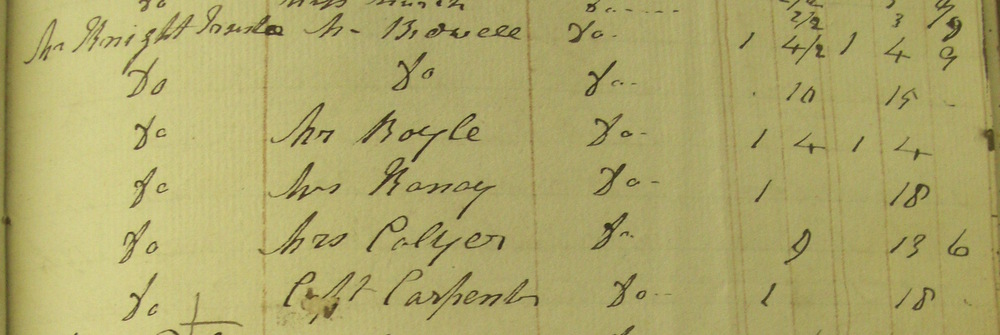 Do Do 2/2 3 9
Mr Knight Mr Bidwell Do 1 4/2 1 4 9
Do Do Do 10 15 -
Do Mr Boyle Do 1 4 1 4
Do Mrs Do 1 18
Do Mrs Colyer Do 9 13 6
Do Capt Carpenter Do 1 18